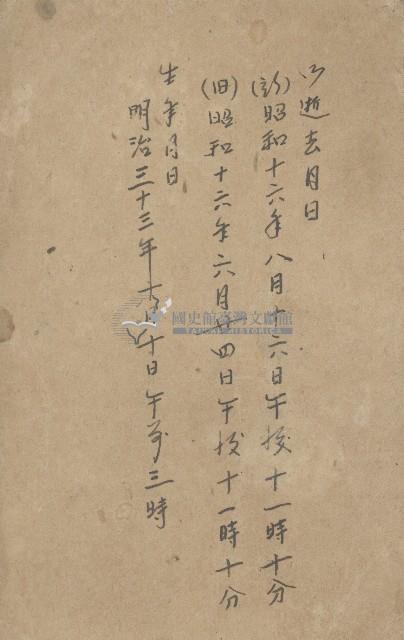 御逝去月日
(新)昭和十六年八月十六日午後十一時十分
(旧)昭和十六年六月廿四日午後十一時十分
生年月日
明治三十三年十月十日午前三時
國史館臺灣文獻館
TAIWAN HISTORICA